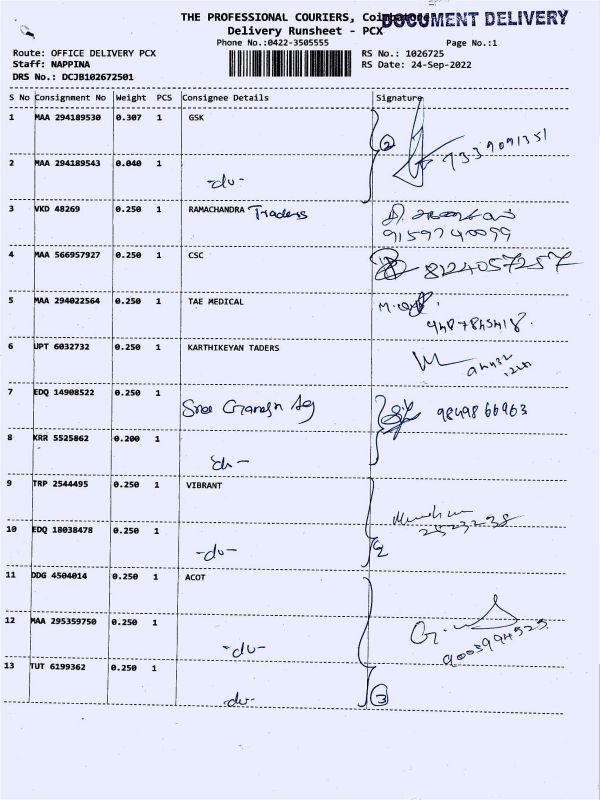 THE PROFESSIONAL COURIERS, Coimbatore
DOCUMENT DELIVERY
Delivery Runsheet - PCX
Phone No.:0422-3505555
Page No.:1
Route: OFFICE DELIVERY PCX
RS No.: 1026725
Staff: NAPPINA
RS Date: 24-Sep-2022
DRS No.: DCJB102672501
S No Consignment No Weight PCS Consignee Details Signature
1 MAA 294189530 0.307 1 GSK
2
7339091351
2 MAA 294189543 0.040 1
-do-
3 VKD 48269 0.250 1 RAMACHANDRA Traders
9159740099
4 MAA 566957927 0.250 1 CSC 8124057257
5 MAA 294022564 0.250 1 TAE MEDICAL
9487845418.
6 UPT 6032732 0.250 1 KARTHIKEYAN TADERS
7 EDQ 14908522 0.250 1
Sree Ganesh Ag 9849866963
8 KRR 5525862 0.200 1
-do-
9 TRP 2544495 0.250 1 VIBRANT
2523238
10 EDQ 18038478 0.250 1
-do-
11 DDG 4504014 0.250 1 ACOT
12 MAA 295359750 0.250 1
9003994525
-do-
13 TUT 6199362 0.250 1
-do- 3